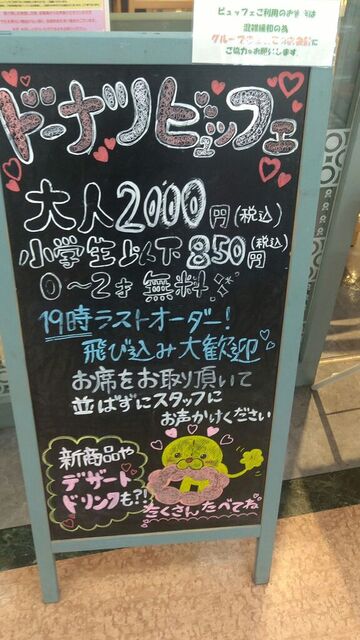 ビュッフェご利用のお
混雑緩和の為
ご協力をお願いします。
ドーナツビュッフェ
大人2000円(税込)
小学生以下850円(税込)
0〜2才無料
19時ラストオーダー!
飛び込み大歓迎♡
お席をお取り頂いて
並ばずにスタッフに
お声かけください
新商品や
デザート
ドリンクも?!
たくさんたべてね。